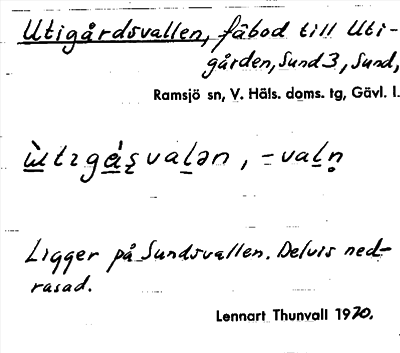 Utigårdsvallen, fäbod till Uti-
gården, Sund 3, Sund,
Ramsjö sn, V. Häls. doms. tg, Gävl. l.
ù̱tɪgá̱ṣvaḻən, -vaḻn̥
Ligger på Sundsvallen. Delvis ned-
rasad.
Lennart Thunvall 1970.